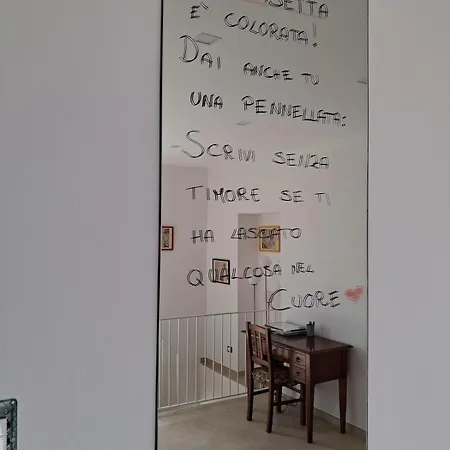 È COLORATA!
DAI ANCHE TU
UNA PENNELLATA:
SCRIVI SENZA
TIMORE SE TI
HA LASCIATO
QUALCOSA NEL
CUORE